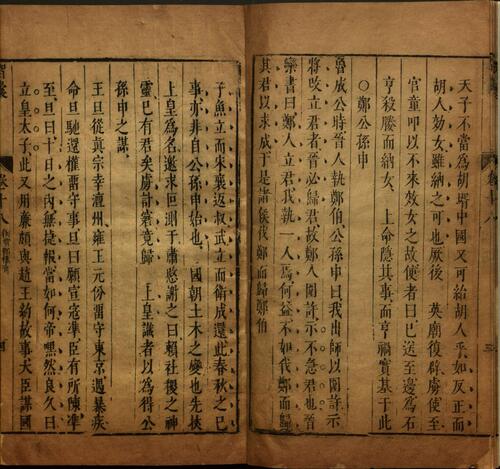 天子不當為胡壻中國又可紿胡人乎如反正而
胡人効女雖納之可也厥後　英廟復辟虜使至
官童呷以不來效女之故使者曰已送至邊為石
亨殺媵而納女　上命隱其事而亨禍實基于此
○鄭公孫申
魯成公時晉人執鄭伯公孫申曰我出師以圍許示
將改立君者晉必歸君故鄭人圍許示不急君也晉
欒書曰鄭人立君我執一人焉何益不如伐鄭而歸
其君以求成于是諸侯伐鄭而歸鄭伯
子魚立而宋襄返叔武立而衛成還此春秋之已
事亦非自公孫申始也　國朝土木之變也先挾
上皇為名邀求叵測于肅愍謝之曰賴社稷之神
靈已有君矣虜計窘竟歸　上皇識者以為得公
孫申之謀
王旦從真宗幸澶州雍王元份畱守東京遇暴疾
命旦馳還權畱守事旦曰願宣寇準臣有所陳準
至旦曰十日之內無捷報當如何帝默然良久曰
立皇太子此又用廉頗與趙王約故事大臣謀國
智囊
卷十八
四
三